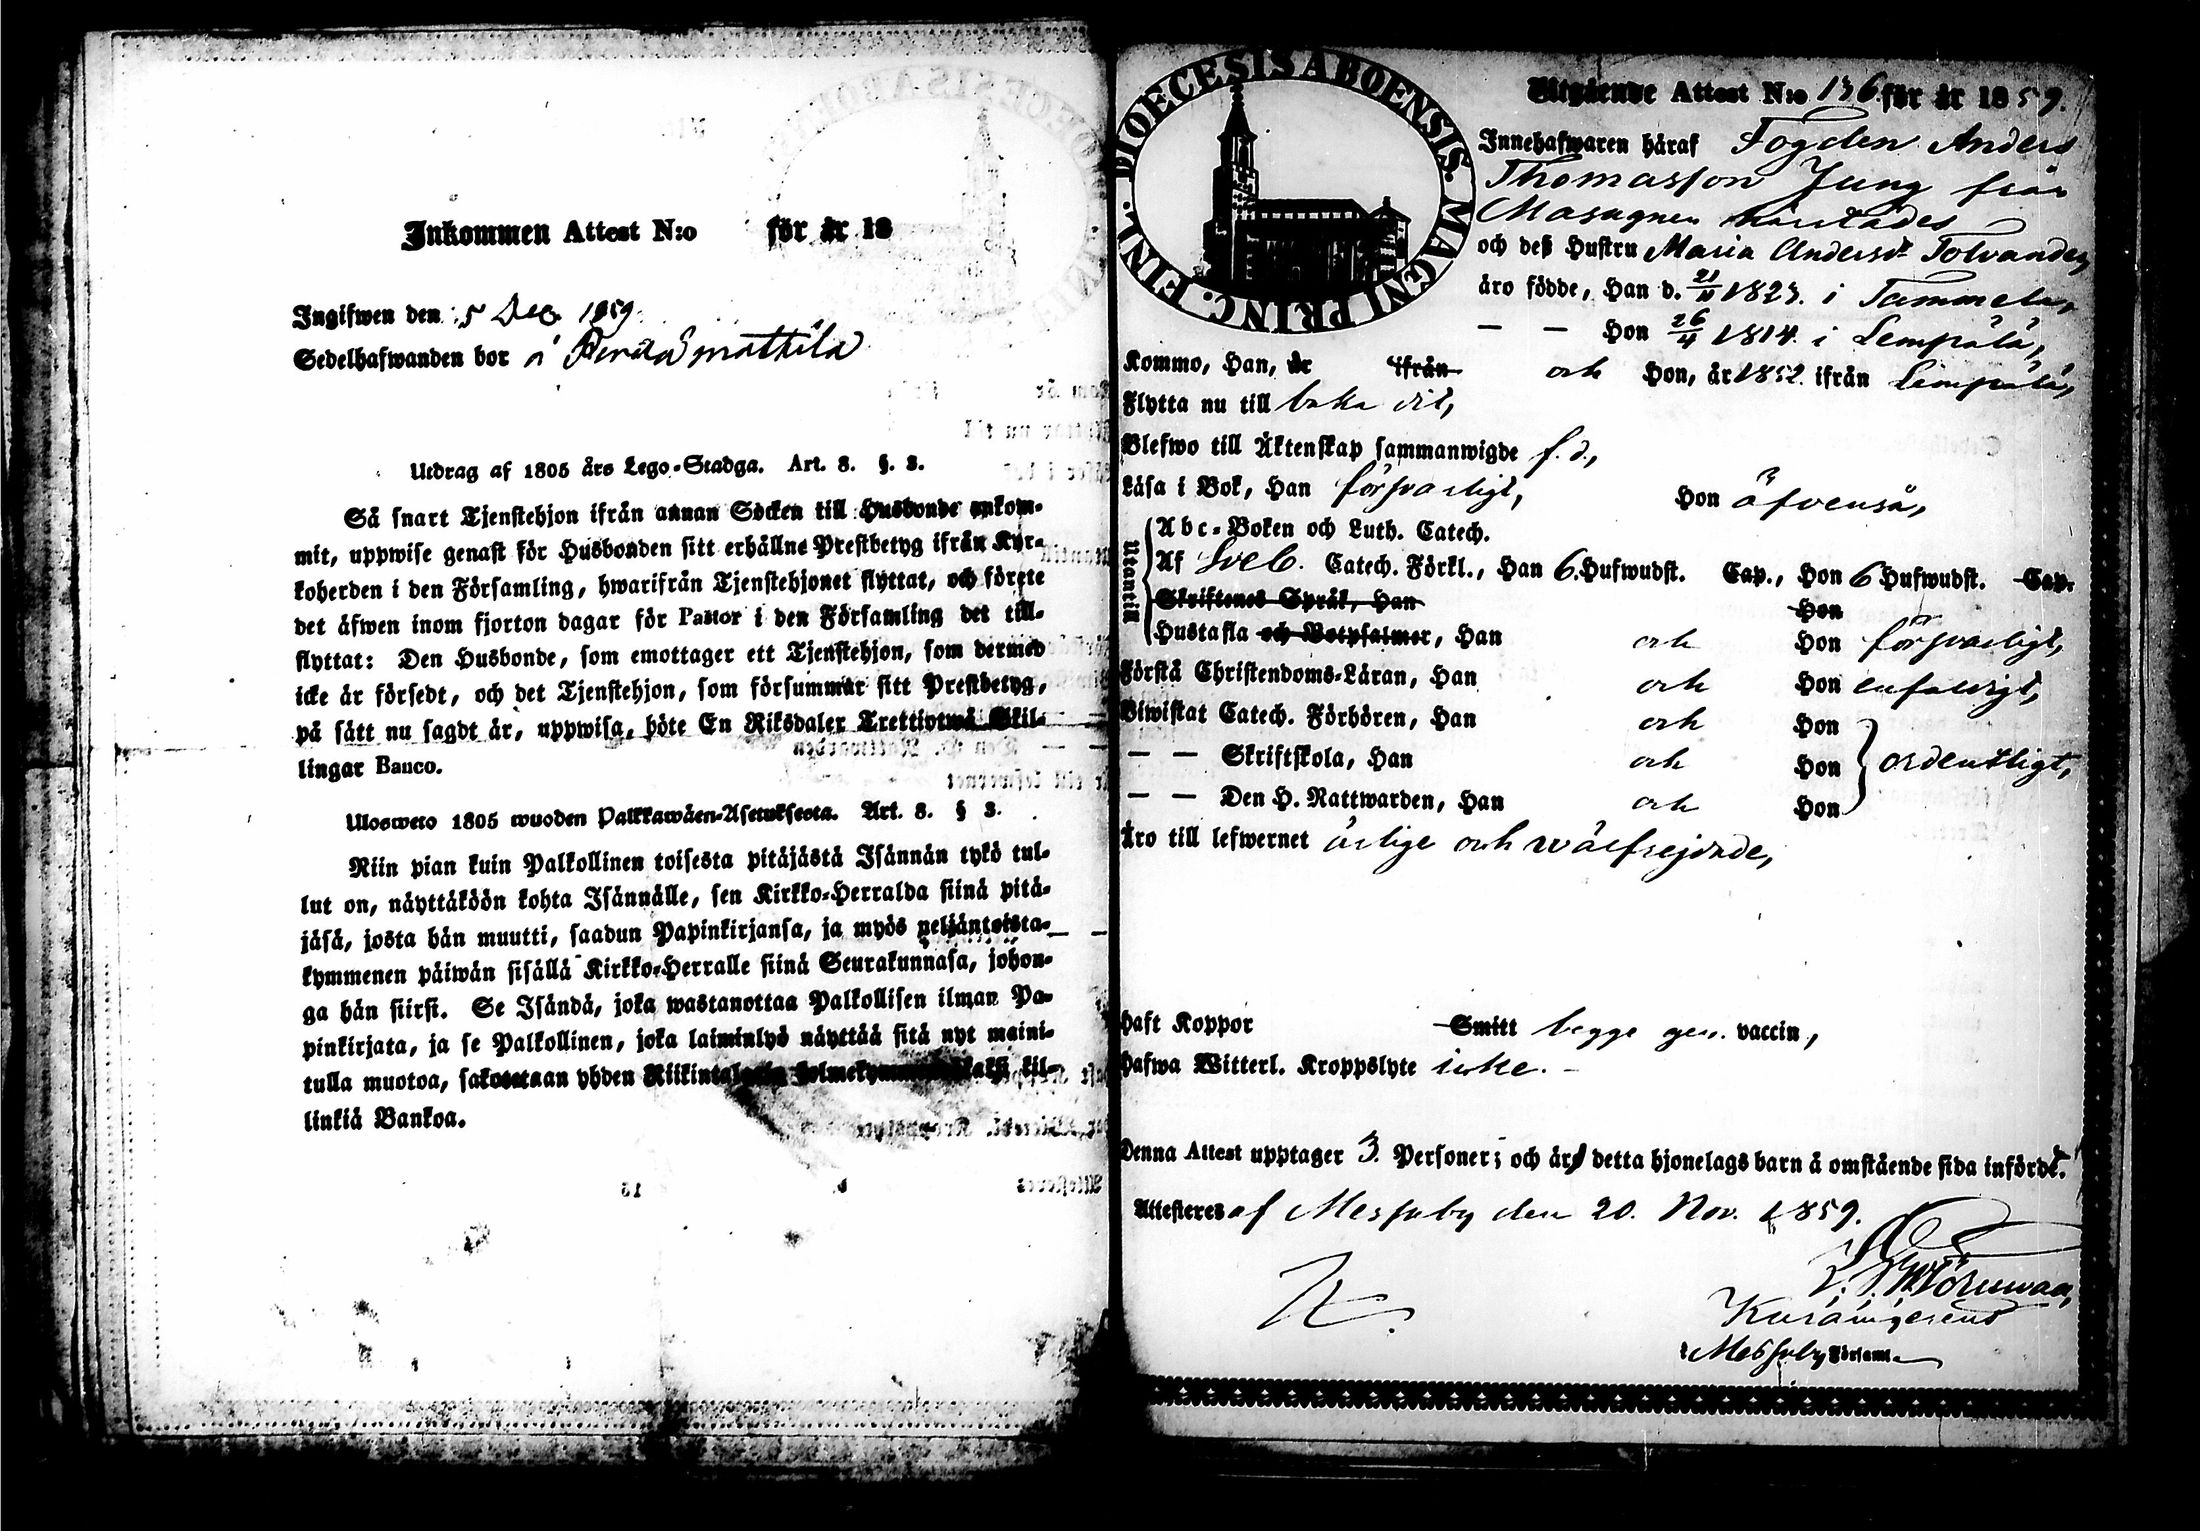 Inkommen Attest N:o för år 18
Ingifwen den 5 Dec 1859.
Sedelhafwanden bor å
Utdrag af 1805 års Lego-Stadga. Art. 8. §. 3.
Så snart Tjenstehjon ifrån annan Socken till Husbonde ankom-
mit, uppwise genast för Husbonden sitt erhållne Prestbetyg ifrån Kyr-
koherden i den Församling, hwarifrån Tjenstehjonet flyttat, och förete
det äfwen inom fjorton dagar för Pastor i den Församling det till-
flyttat: Den Husbonde, som emottager ett Tjenstehjon, som dermed
icke är försedt, och det Tjenstehjon, som försummar sitt Prestbetyg,
på sätt nu sagdt är, uppwisa, böte En Riksdaler Trettiotwå Skil-
lingar Banco.
Ulosweto 1805 wuoden Palkkawäen-Asetuksesta. Art. 8. § 3.
Niin pian kuin Palkollinen toisesta pitäjästä Isännän tykö tul-
lut on, näyttäköön kohta Isännälle, sen Kirkko-Herralda siinä pitä-
jäsä, josta hän muutti, saadun Papinkirjansa, ja myös neljäntoista-
kymmenen päiwän sisällä Kirkko-Herralle siinä Seurakunnasa, johon-
ga hän siirsi. Se Isändä, joka wastanottaa Palkollisen ilman Pa-
pinkirjata, ja se Palkollinen, joka laiminlyö näyttää sitä nyt maini-
tulla muotoa, sakotetaan yhden kil-
linkiä Bankoa.
DIOECESIS ABOENSIS. MAGNI PRINC. FINL.
Utgående Attest N:o 136 för år 1859.
Innehafwaren häraf Fogden Anders
Thomasson Jung från
härstädes
och deß Hustru Maria Andersdr Tolvanden,
äro födde, Han d. 21/11 1823. i Tammela,
— — Hon 26/4 1814. i Lempälä,
Kommo, Han, år ifrån och Hon, år 1852. ifrån Lempälä,
Flytta nu till baka dit,
Blefwo till Äktenskap sammanwigde f. d.,
Läsa i Bok, Han försvarligt, Hon äfvenså,
Utantill
Abc-Boken och Luth. Catech.
Af Sveb. Catech. Förkl., Han 6. Hufwudst. Cap., Hon 6 Hufwudst. Cap.
Skriftenes Språk, Han Hon
Hustafla och Botpsalmer, Han och Hon försvarligt,
Förstå Christendoms-Läran, Han och Hon enfaldigt,
Biwistat Catech. Förhören, Han och Hon
— — Skriftskola, Han och Hon ordentligt,
— — Den H. Nattwarden, Han och Hon
Äro till lefwernet ärlige och wälfrejdade,
Haft Koppor Smitt begge gen. vaccin,
Hafwa Witterl. Kroppslyte icke. —
Denna Attest upptager 3. Personer; och är detta hjonelags barn å omstående sida infördt.
Attesteres af Messuby den 20. Nov. 1859.
Messuby Församl.